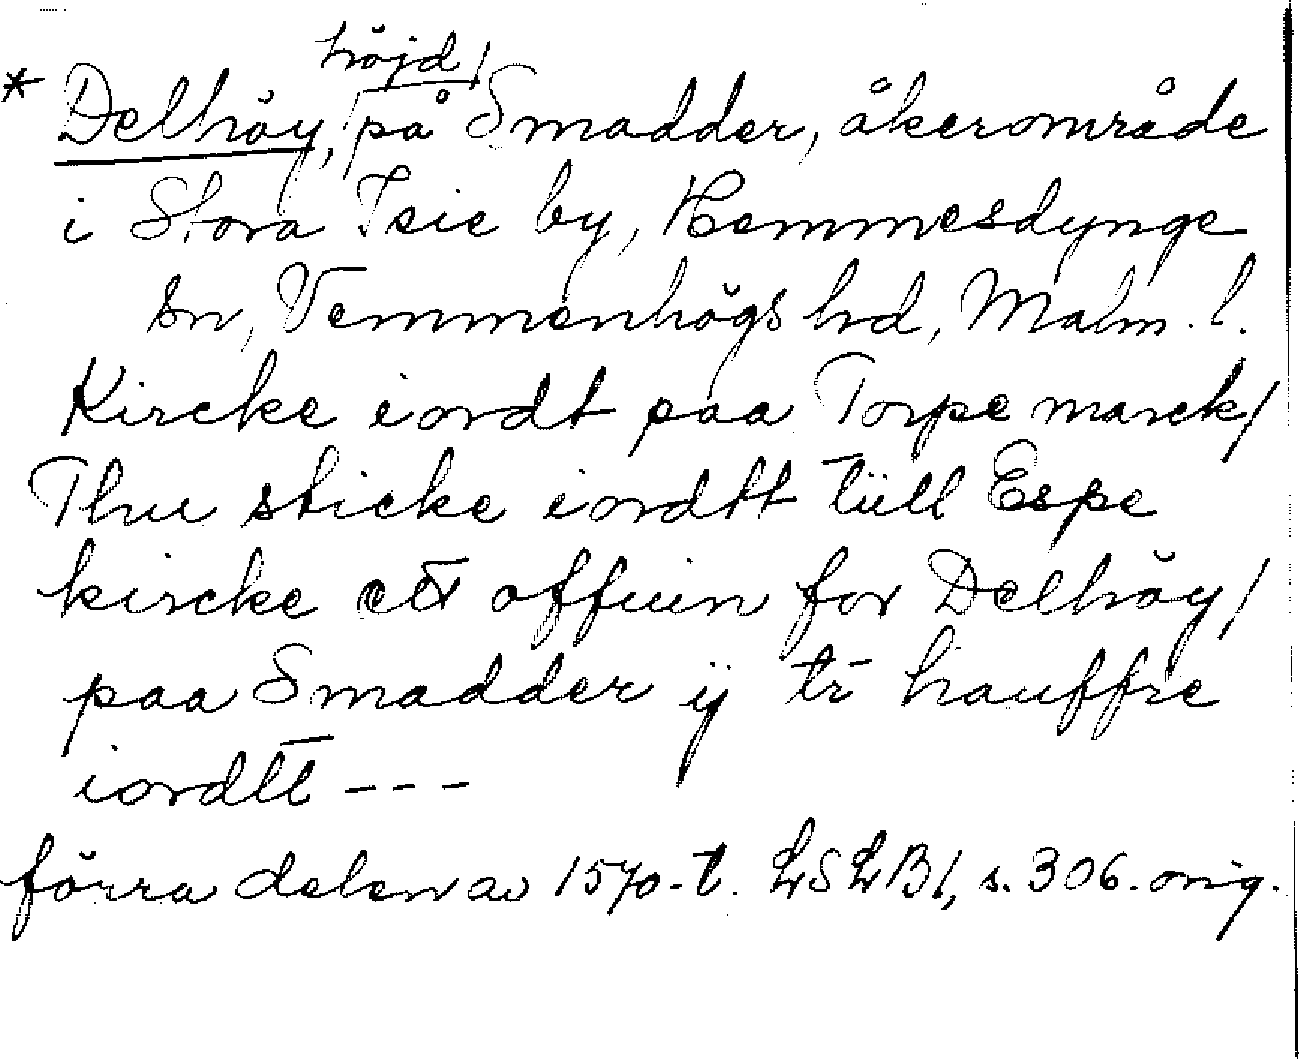 höjd/
* Delhöy, på Smadder, åkerområde
i Stora Isie by, Hemmesdynge
sn, Vemmenhögs hd, Malm. l.
Kircke iordt paa Torpe marck/
Thu sticke iordtt tüll Espe
kircke ett offuen for Delhöy/
paa Smadder ij tr hauffre
iordtt ---
förra delen av 1570-t. LSLB1, s. 306. orig.